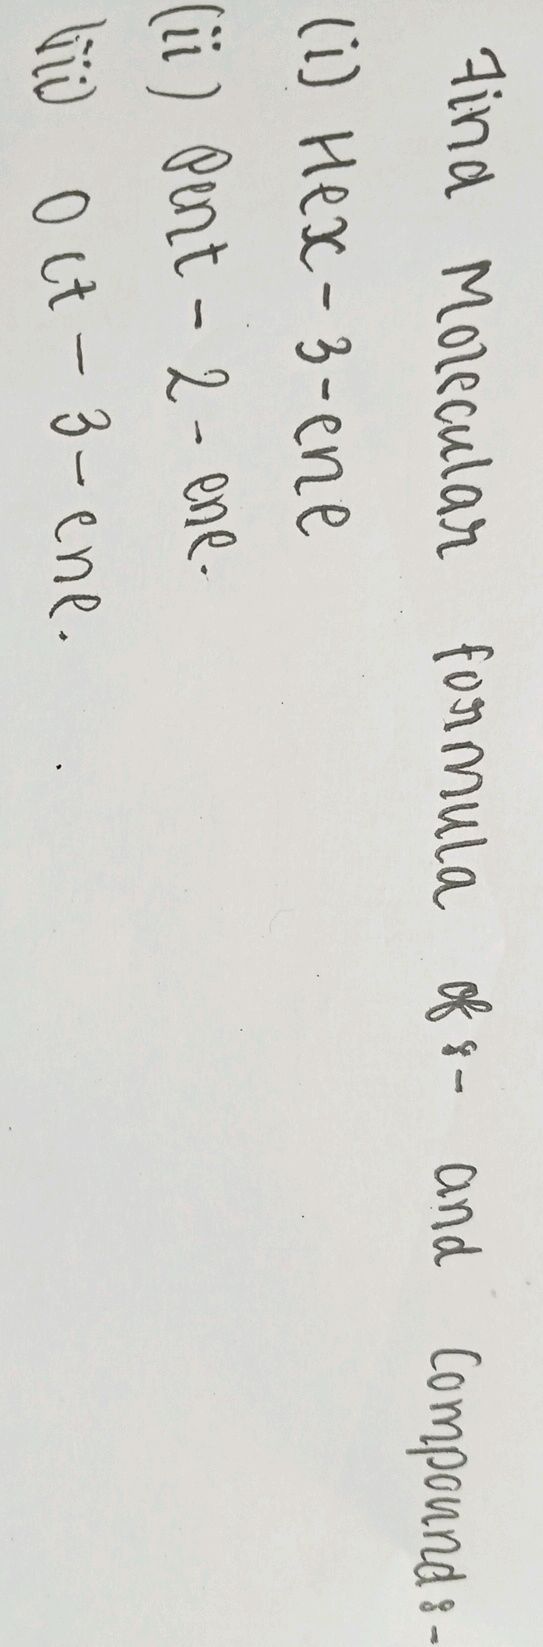 Find Molecular formula of :- and Compound :-
(i) Hex-3-ene
(ii) Pent-2-ene.
(iii) Oct-3-ene.